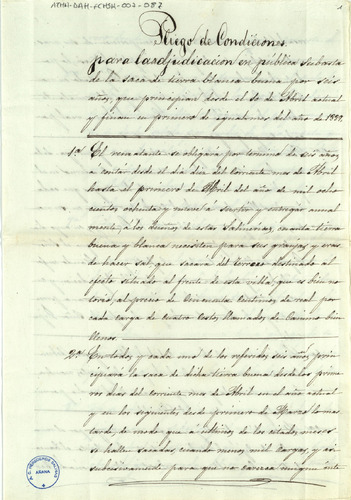 ATHA-DAH-FCHSH-002-087
1
Pliego de Condiciones
para la adjudicacion en publica subasta
de la saca de tierra blanca buena por seis
años, que principian desde el 10 de Abril actual
y finan en primero de igual mes del año de 1889.
1ª El rematante se obligará por termino de seis años
á contar desde el dia diez del corriente mes de Abril
hasta el primero de Abril del año de mil ocho
cientos ochenta y nueve á surtir y entregar anual
mente á los dueños de estas Salinerias, cuanta tierra
buena y blanca necesiten para sus granjas y eras
de hacer sal, que sacará del terreno destinado al
efecto situado al frente de esta villa que es bien no
torio, al precio de Cincuenta Centimos de real por
cada carga de Cuatro Cestos llamados de Camino bien
llenos.
2ª En todos y cada uno de los referidos seis años, prin
cipiará la saca de dicha tierra buena desde los prime
ros dias del corriente mes de Abril en el año actual
y en los siguientes desde primero de Marzo lo mas
tarde, de modo que á ultimos de los citados meses
se hallen sacadas, cuando menos mil Cargas, y asi
subcesivamente para que no carezca ningun inte
AÑANA